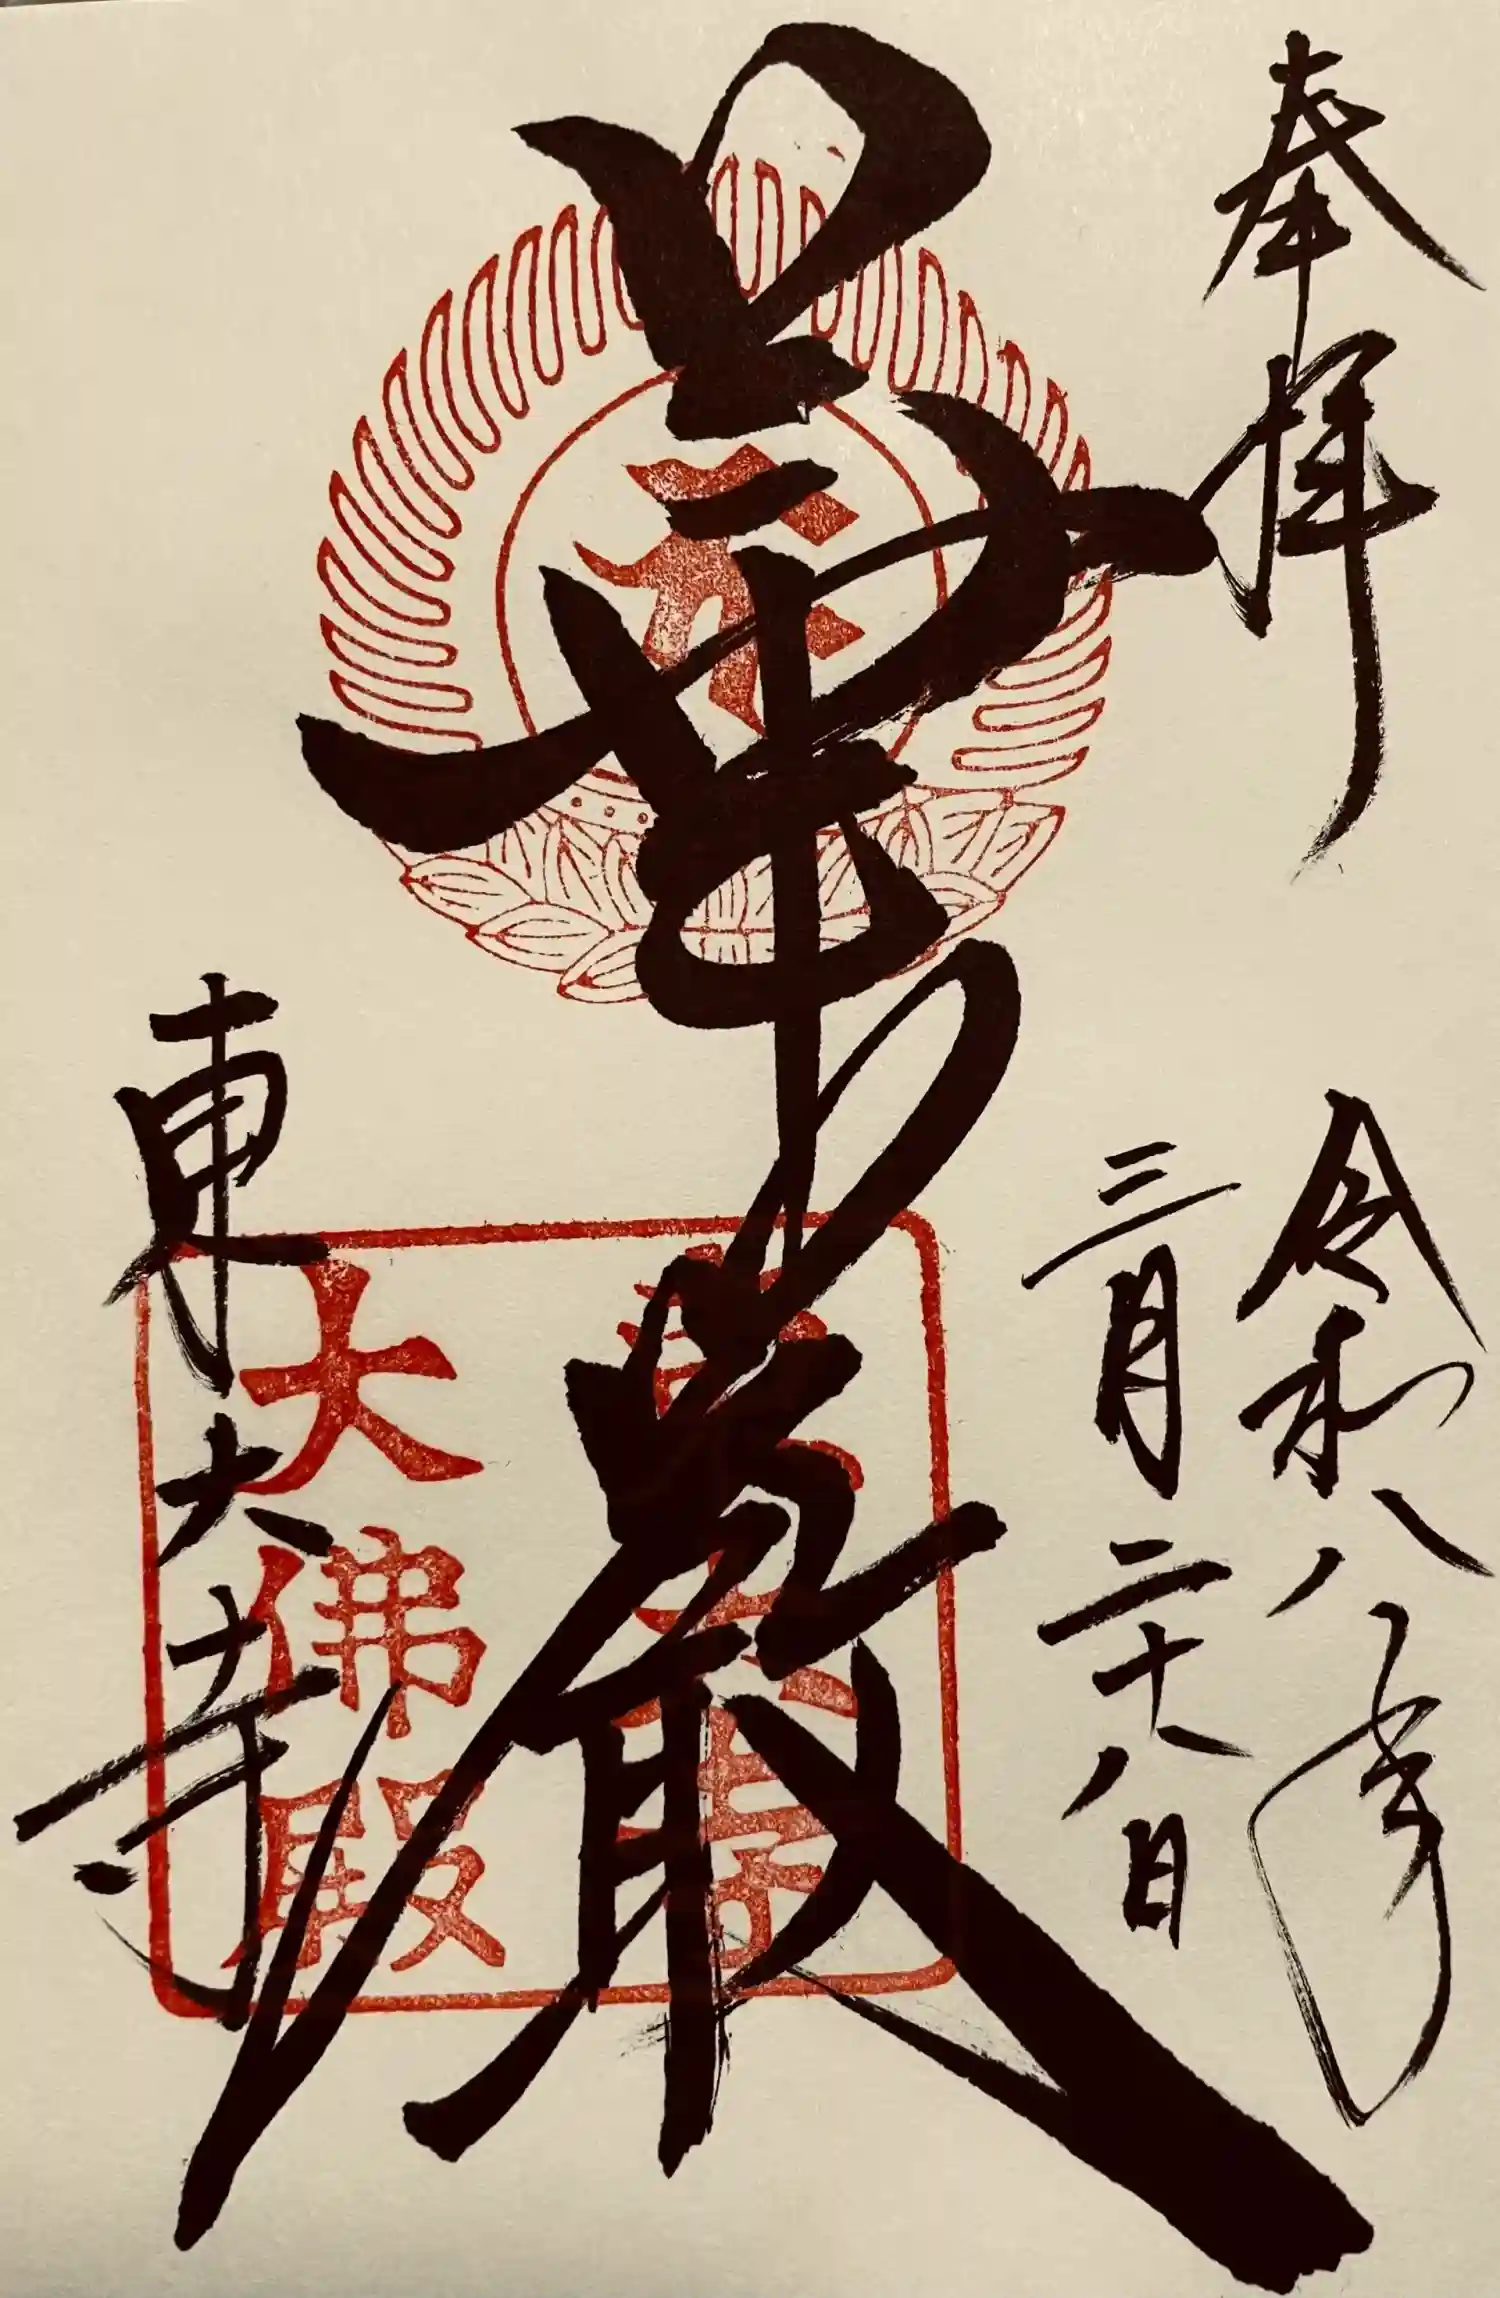 奉拝
令和八年
三月二十八日
華厳
東大寺
大佛殿